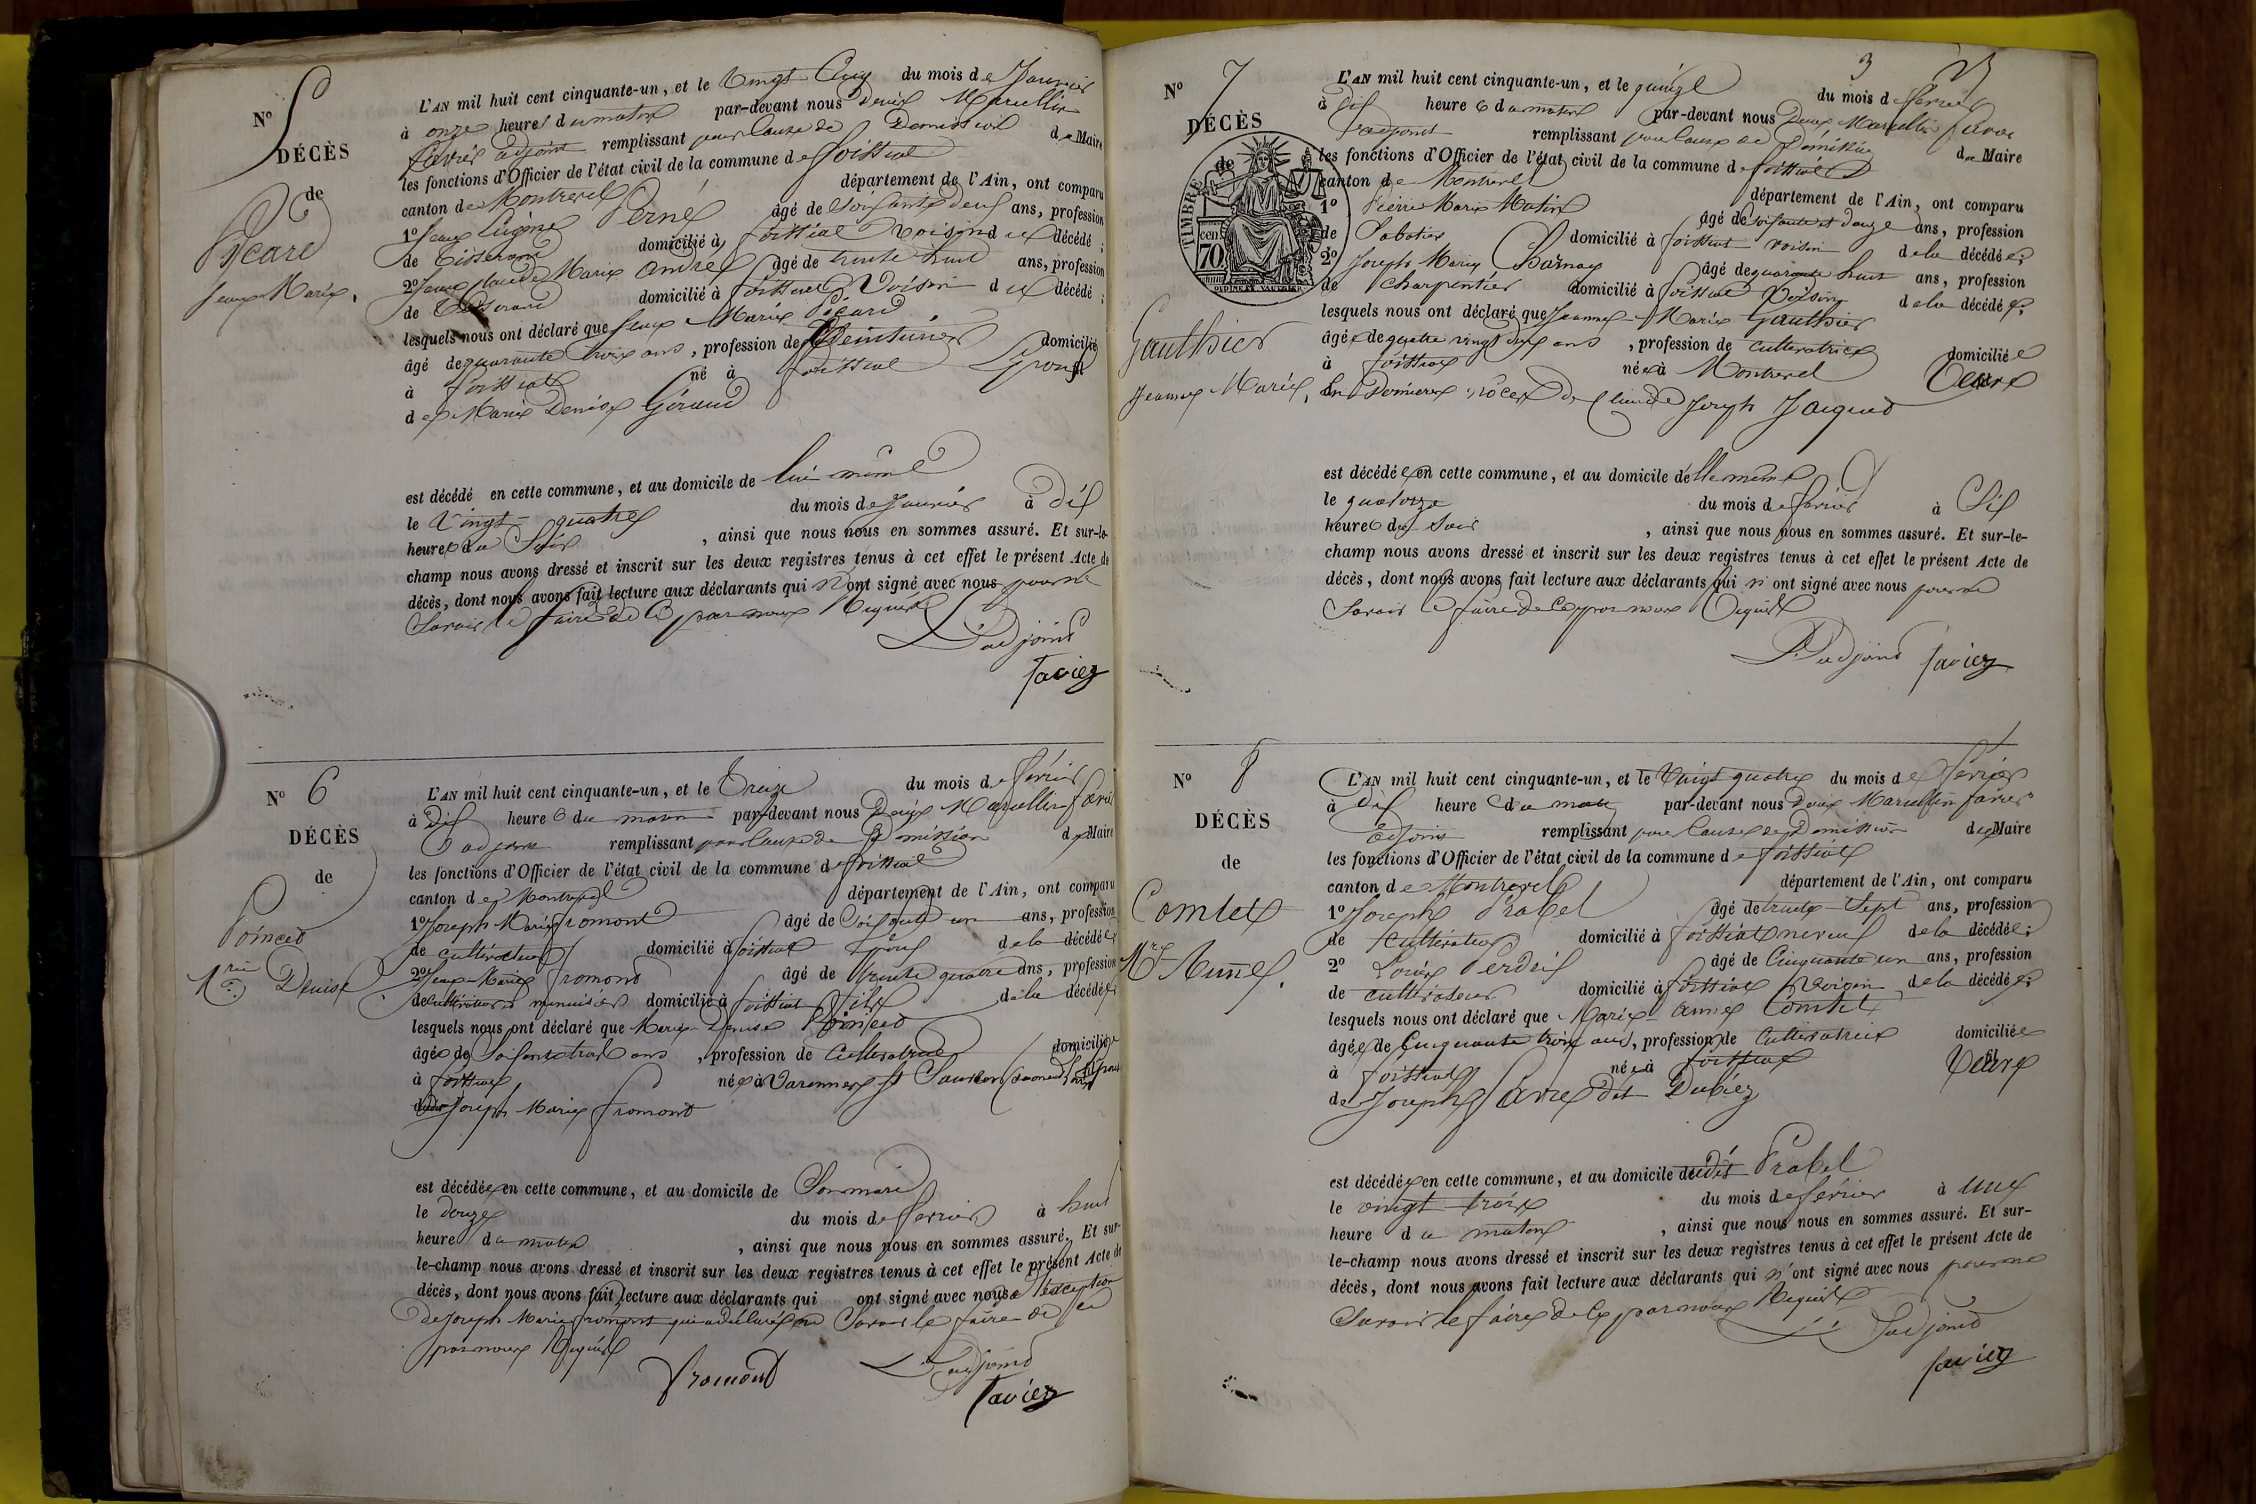 N° 5
DÉCÈS
de
Picard
Jean Marie.
L'AN mil huit cent cinquante-un, et le Vingt Cinq du mois de Janvier
à onze heures du matin par-devant nous Denis Marcellin
Favier adjoint remplissant pour Cause de Demission de Maire
les fonctions d'Officier de l'état civil de la commune de foissiat
canton de Montrevel département de l'Ain, ont comparu
1° Jean Eugène Perné âgé de Soixante deux ans, profession
de Tisserand domicilié à foissiat voisin du décédé ;
2° Jean Claude Marie André âgé de trente huit ans, profession
de Tisserand domicilié à foissiat Voisin du décédé ;
lesquels nous ont déclaré que Jean Marie Picard
âgé de quarante trois ans, profession de Peinturier domicilié
à foissiat né à foissiat Epoux
de Marie Denise Géraud
est décédé en cette commune, et au domicile de lui même
le Vingt quatre du mois de Janvier à dix
heures du Soir, ainsi que nous nous en sommes assuré. Et sur-le-
champ nous avons dressé et inscrit sur les deux registres tenus à cet effet le présent Acte de
décès, dont nous avons fait lecture aux déclarants qui n'ont signé avec nous pour ne
Savoir le faire de ce par nous Requis
L'adjoint
Favier
N° 6
DÉCÈS
de
Poincet
Mrie Denise
L'AN mil huit cent cinquante-un, et le Treize du mois de février
à dix heure du matin par-devant nous Denis Marcellin favier
adjoint remplissant pour Cause de Demission de Maire
les fonctions d'Officier de l'état civil de la commune de foissiat
canton de Montrevel département de l'Ain, ont comparu
1° Joseph Marie fromont âgé de Soixante un ans, profession
de cultivateur domicilié à foissiat époux de la décédée
2° Jean Marie fromont âgé de trente quatre ans, profession
de menuisier domicilié à foissiat fils de la décédée
lesquels nous ont déclaré que Marie Denise Poincet
âgée de Soixante trois ans, profession de Cultivatrice domiciliée
à foissiat née à Varennes St Sauveur
Joseph Marie fromont
est décédée en cette commune, et au domicile de Son mari
le douze du mois de fevrier à huit
heure du matin, ainsi que nous nous en sommes assuré. Et sur-
le-champ nous avons dressé et inscrit sur les deux registres tenus à cet effet le présent Acte de
décès, dont nous avons fait lecture aux déclarants qui ont signé avec nous à l'exception
de Joseph Marie fromont qui a déclaré ne Savoir le faire de ce
par nous Requis
Fromont L'adjoint
Favier
3
N° 7
DÉCÈS
de
TIMBRE
70 cen
Gauthier
Jeanne Marie.
L'AN mil huit cent cinquante-un, et le quinze du mois de fevrier
à dix heure du matin par-devant nous Denis Marcellin favier
adjoint remplissant pour Cause de Démission de Maire
les fonctions d'Officier de l'état civil de la commune de foissiat
canton de Montrevel département de l'Ain, ont comparu
1° Pierre Marie Matin âgé de Soixante et douze ans, profession
de Sabotier domicilié à foissiat voisin de la décédée ;
2° Joseph Marie Charnay âgé de quarante huit ans, profession
de Charpentier domicilié à foissiat Voisin de la décédée.
lesquels nous ont déclaré que Jeanne Marie Gauthier
âgée de quatre vingt dix ans, profession de Cultivatrice domiciliée
à foissiat née à Montrevel Veuve
En Dernieres nôces de Claude Joseph Jacquet
est décédée en cette commune, et au domicile d'elle même
le quatorze du mois de fevrier à Six
heure du Soir, ainsi que nous nous en sommes assuré. Et sur-le-
champ nous avons dressé et inscrit sur les deux registres tenus à cet effet le présent Acte de
décès, dont nous avons fait lecture aux déclarants qui n'ont signé avec nous pour ne
Savoir le faire de ce par nous Requis
L'adjoint Favier
N° 8
DÉCÈS
de
Comtet
Mrie Anne.
L'AN mil huit cent cinquante-un, et le Vingt quatre du mois de fevrier
à dix heure du matin par-devant nous Denis Marcellin favier
adjoint remplissant pour Cause de Demission de Maire
les fonctions d'Officier de l'état civil de la commune de foissiat
canton de Montrevel département de l'Ain, ont comparu
1° Joseph Prabel âgé de trente Sept ans, profession
de Cultivateur domicilié à foissiat neveu de la décédée ;
2° Louis Perdrix âgé de Cinquante un ans, profession
de Cultivateur domicilié à foissiat Voisin de la décédée
lesquels nous ont déclaré que Marie anne Comtet
âgée de Cinquante trois ans, profession de Cultivatrice domiciliée
à foissiat née à foissiat Veuve
de Joseph favre dit Dubiez
est décédée en cette commune, et au domicile dudit Prabel
le vingt trois du mois de février à une
heure du matin, ainsi que nous nous en sommes assuré. Et sur-
le-champ nous avons dressé et inscrit sur les deux registres tenus à cet effet le présent Acte de
décès, dont nous avons fait lecture aux déclarants qui n'ont signé avec nous pour ne
Savoir le faire de ce par nous Requis
L'adjoint
Favier